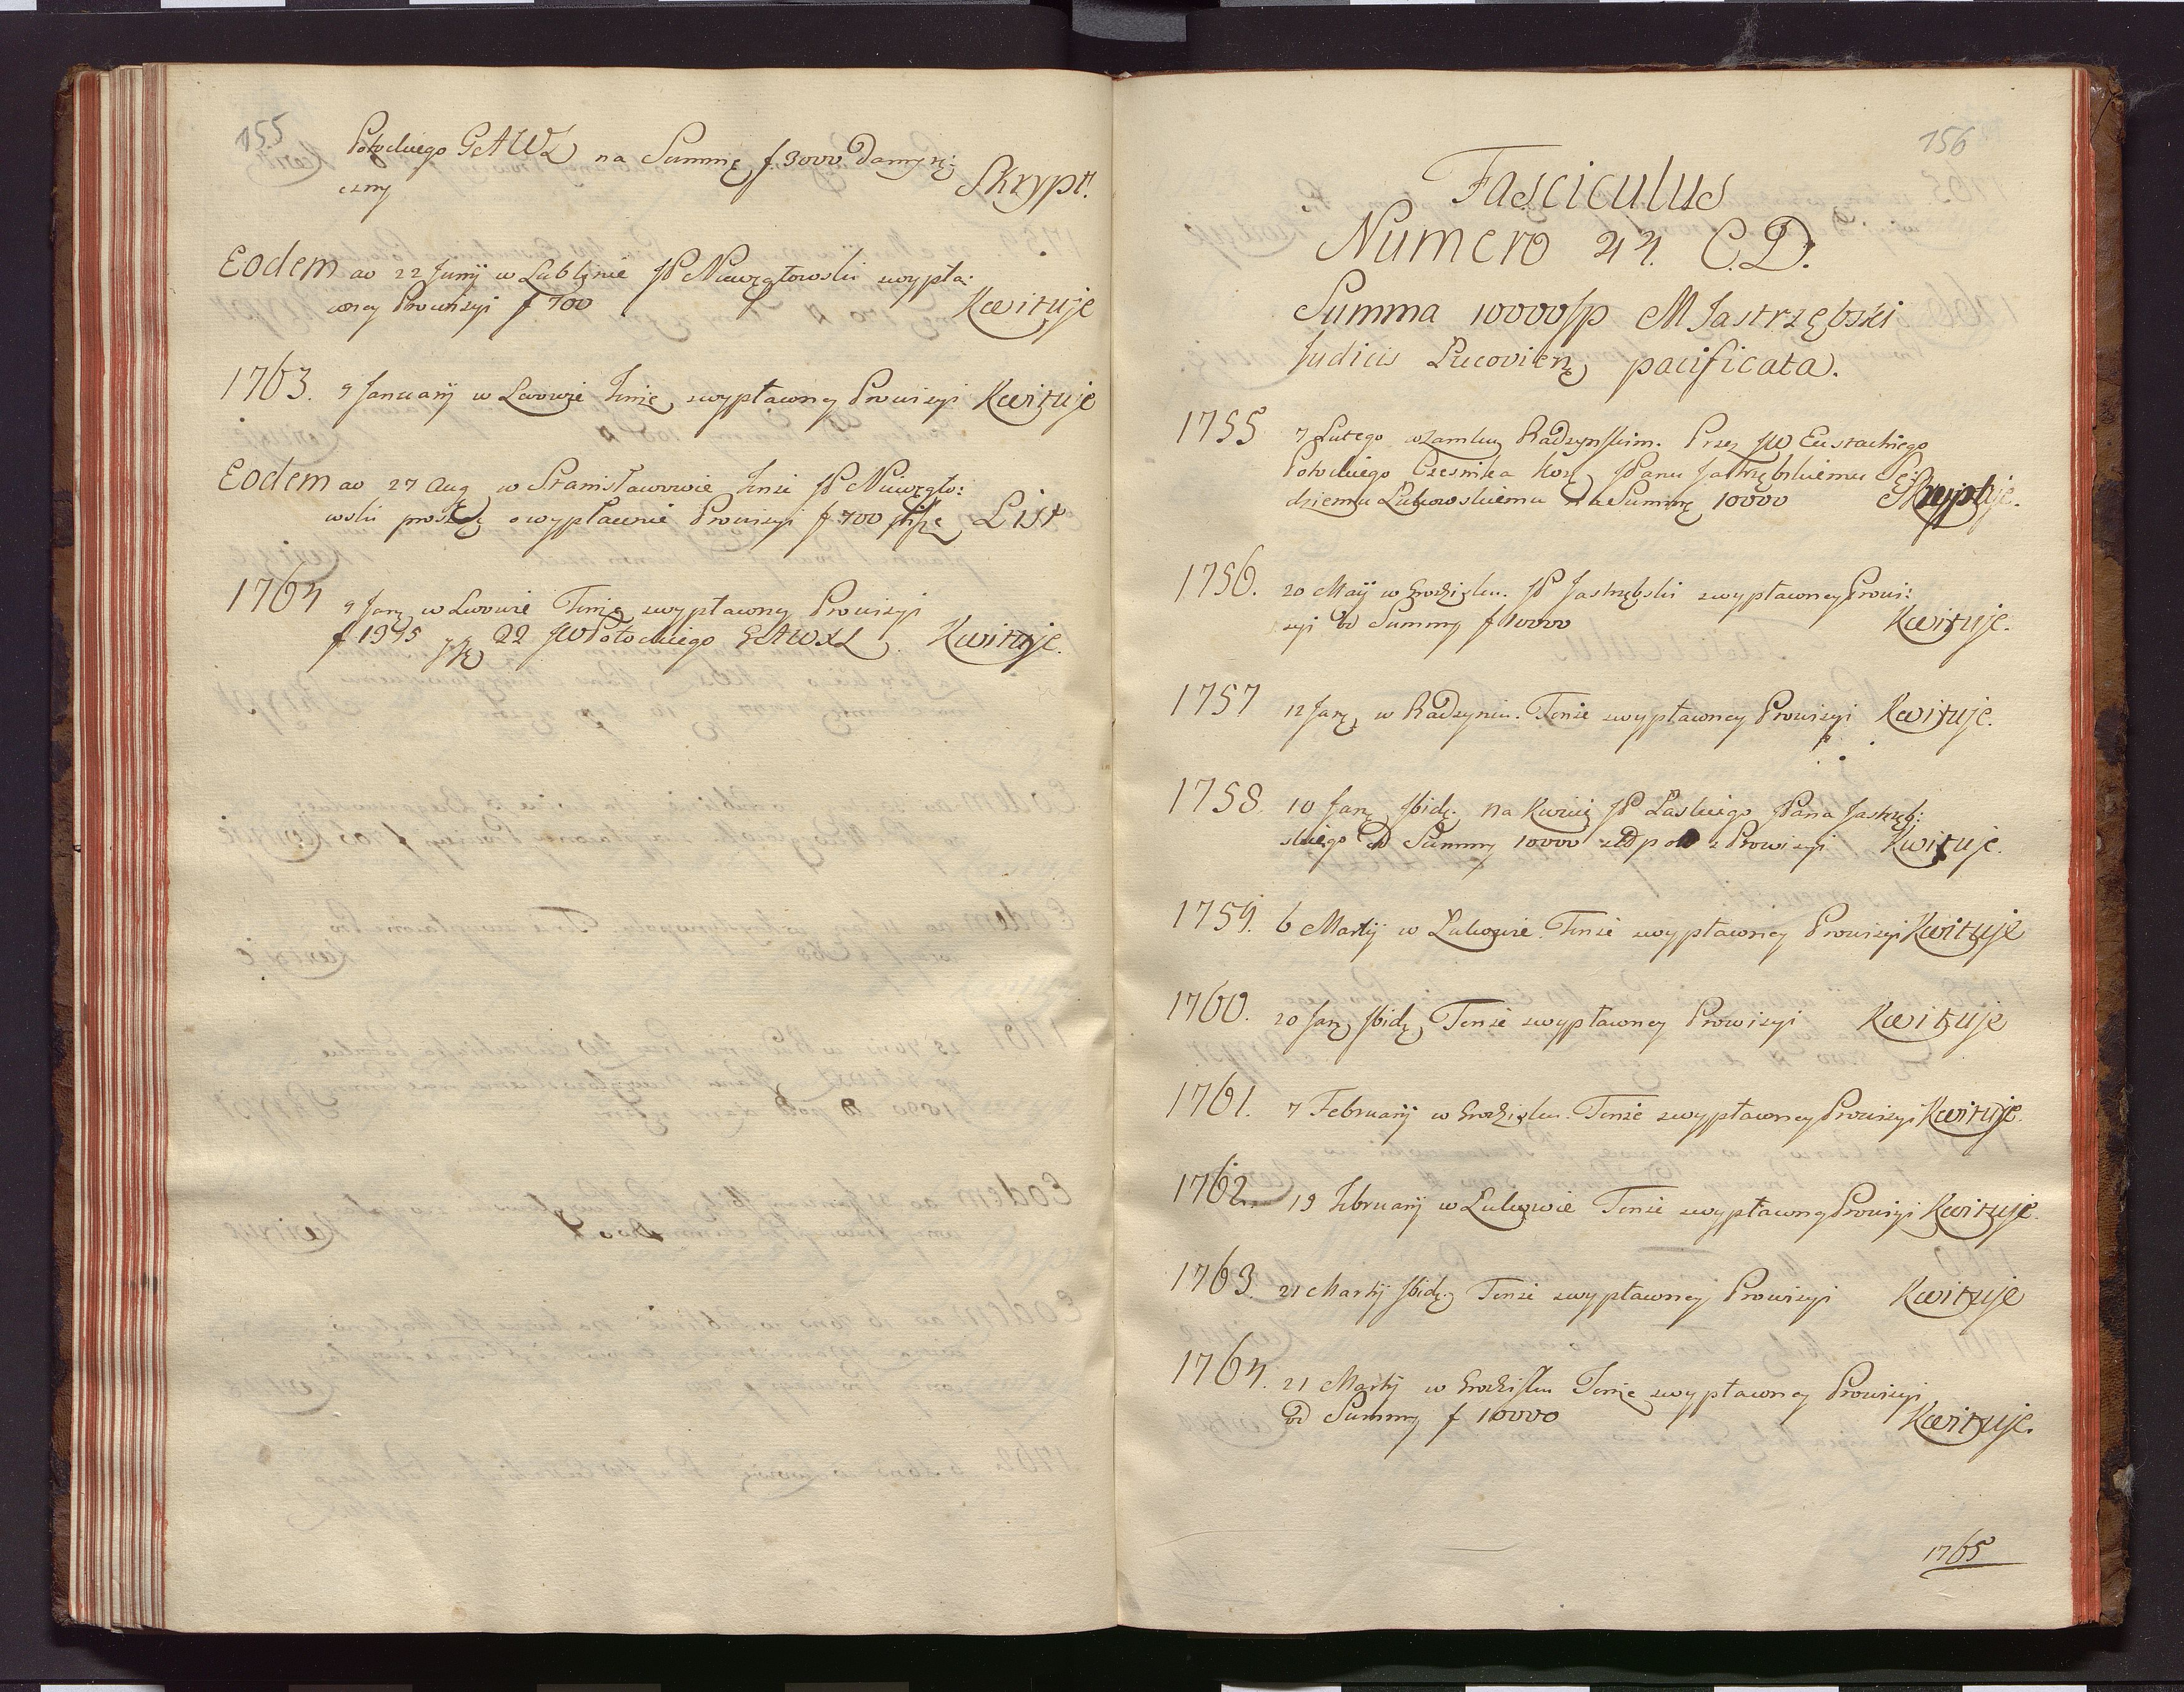 155
Potockiego GAWL na Summę f 3000 dany rę:
czny Skrypt.
Eodem ao 22 Junij w Lublinie JP Niewęgłowski zwypła:
coney Prowizyi f 700 Kwituje
1763. 9 Januarij w Lwowie Tenże zwypłaconey Prowizyi Kwituje
Eodem ao 27 Aug w Stanisławowie Tenże JP Niewęgło:
wski proszący o wypłacenie Prowizyi f 700 pisze List
1764 9 Jan w Lwowie Tenże zwypłaconey Prowizyi
f 1395 22 JW Potockiego GAWXL Kwituje.
156
Fasciculus
Numero 44. C.D.
Summa 10000 fp M Jastrzębski
Judicis Lucovien pacificata.
1755 7 Lutego w Zamku Radzynskim. Przez JW Eustachiego
Potockiego Czesnika Kor JPanu Jastrzębskiemu Sę:
dziemu Łukowskiemu na Summę 10000
1756. 20 Maij w Grodzisku. JP Jastrzębski zwypłaconey Prowi:
zyi od Summy f 10000 Kwituje.
1757 12 Jan w Radzyniu. Tenże zwypłaconey Prowizyi Kwituje.
1758. 10 Jan Ibid. na Kwicie JP Laskiego JPana Jastrzęb:
skiego od Summy 10000 zł pol z Prowizyi Kwituje.
1759. 6 Martij w Łukowie. Tenże zwypłaconey Prowizyi Kwituje
1760. 20 Jan Ibid. Tenże zwypłaconey Prowizyi Kwituje
1761. 7 Februarij w Grodzisku. Tenże zwypłaconey Prowizyi Kwituje.
1762. 19 Februarij w Łukowie Tenże zwypłaconey Prowizyi Kwituje.
1763. 21 Martij Ibid. Tenże zwypłaconey Prowizyi Kwituje
1764. 21 Martij w Grodzisku Tenże zwypłaconey Prowizyi
od Summy f 10000 Kwituje.
1765